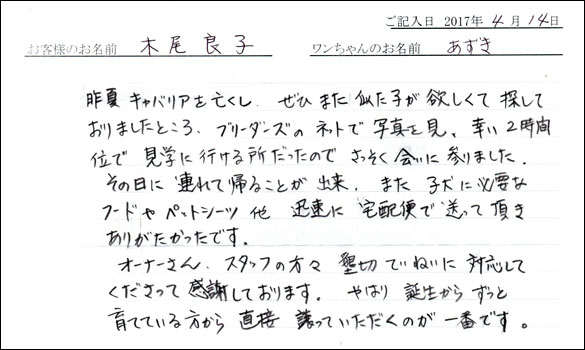 ご記入日 2017年 4月 14日
お客様のお名前 木尾 良子 ワンちゃんのお名前 あずき
昨夏 キャバリアを亡くし、ぜひ また 似た子が 欲しくて 探して
おりましたところ、ブリーダンズの ネットで 写真を見、幸い 2時間
位で 見学に行ける所だったので さっそく 会いに 参りました。
その日に 連れて帰ることが 出来、また 子犬に必要な
フードや ペットシーツ 他 迅速に 宅配便で 送って 頂き
ありがたかったです。
オーナーさん、スタッフの方々 懇切ていねいに 対応して
くださって 感謝しております。 やはり 誕生から ずっと
育てている方から 直接 譲っていただくのが 一番です。